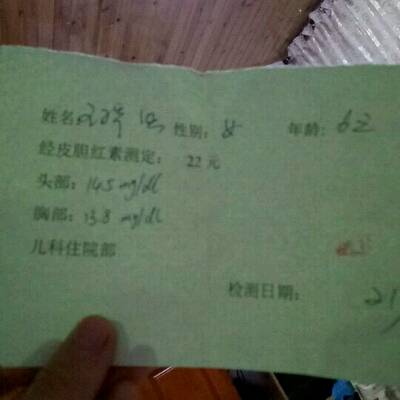 姓名 性别：女 年龄：62
经皮胆红素测定： 22元
头部：14.5 mg/dl
胸部：13.8 mg/dl
儿科住院部
检测日期： 21